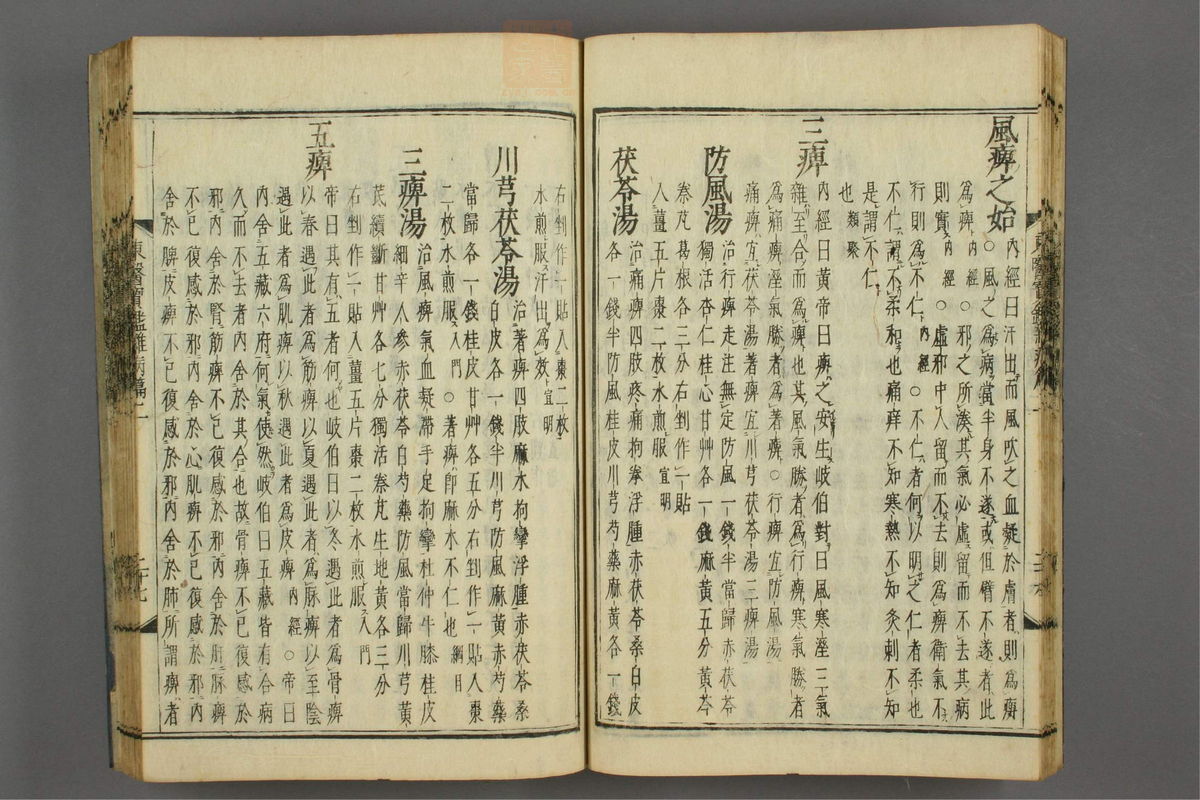 風痺之始內經曰汗出而風吹之血凝於膚者則為痺
○風之為病當半身不遂或但臂不遂者此
為痺內經○邪之所湊其氣必虛留而不去其病
則實內經○虛邪中人留而不去則為痺衛氣不
行則為不仁內經○不仁者何以明之仁者柔也
不仁謂不柔和也痛痒不知寒熱不知灸刺不知
是謂不仁
也類聚
三痺內經曰黃帝曰痺之安生岐伯對曰風寒溼三氣
雜至合而為痺也其風氣勝者為行痺寒氣勝者
為痛痺溼氣勝者為著痺○行痺宜防風湯
痛痺宜茯苓湯著痺宜川芎茯苓湯三痺湯
防風湯治行痺走注無定防風一錢半當歸赤茯苓
獨活杏仁桂心甘艸各一錢麻黃五分黃芩
秦芃葛根各三分右剉作一貼
入薑五片棗二枚水煎服宜明
茯苓湯治痛痺四肢疼痛拘拳浮腫赤茯苓桑白皮
各一錢半防風桂皮川芎芍藥麻黃各一錢
右剉作一貼入棗二枚
水煎服汗出為效宜明
川芎茯苓湯治著痺四肢麻木拘攣浮腫赤茯苓桑
白皮各一錢半川芎防風麻黃赤芍藥
當歸各一錢桂皮甘艸各五分右剉作一貼入棗
二枚水煎服入門○著痺卽麻木不仁也綱目
三痺湯治風痺氣血凝滯手足拘攣杜仲牛膝桂皮
細辛人參赤茯苓白芍藥防風當歸川芎黃
芪續斷甘艸各七分獨活秦芃生地黃各三分
右剉作一貼入薑五片棗二枚水煎服入門
五痺帝曰其有五者何也岐伯曰以冬遇此者為骨痺
以春遇此者為筋痺以夏遇此者為脈痺以至陰
遇此者為肌痺以秋遇此者為皮痺內經○帝曰
內舍五藏六府何氣使然岐伯曰五藏皆有合病
久而不去者內舍於其合也故骨痺不已復感於
邪內舍於腎筋痺不已復感於邪內舍於肝脈痺
不已復感於邪內舍於心肌痺不已復感於邪內
舍於脾皮痺不已復感於邪內舍於肺所謂痺者
東醫寶鑑雜病篇二
二十七